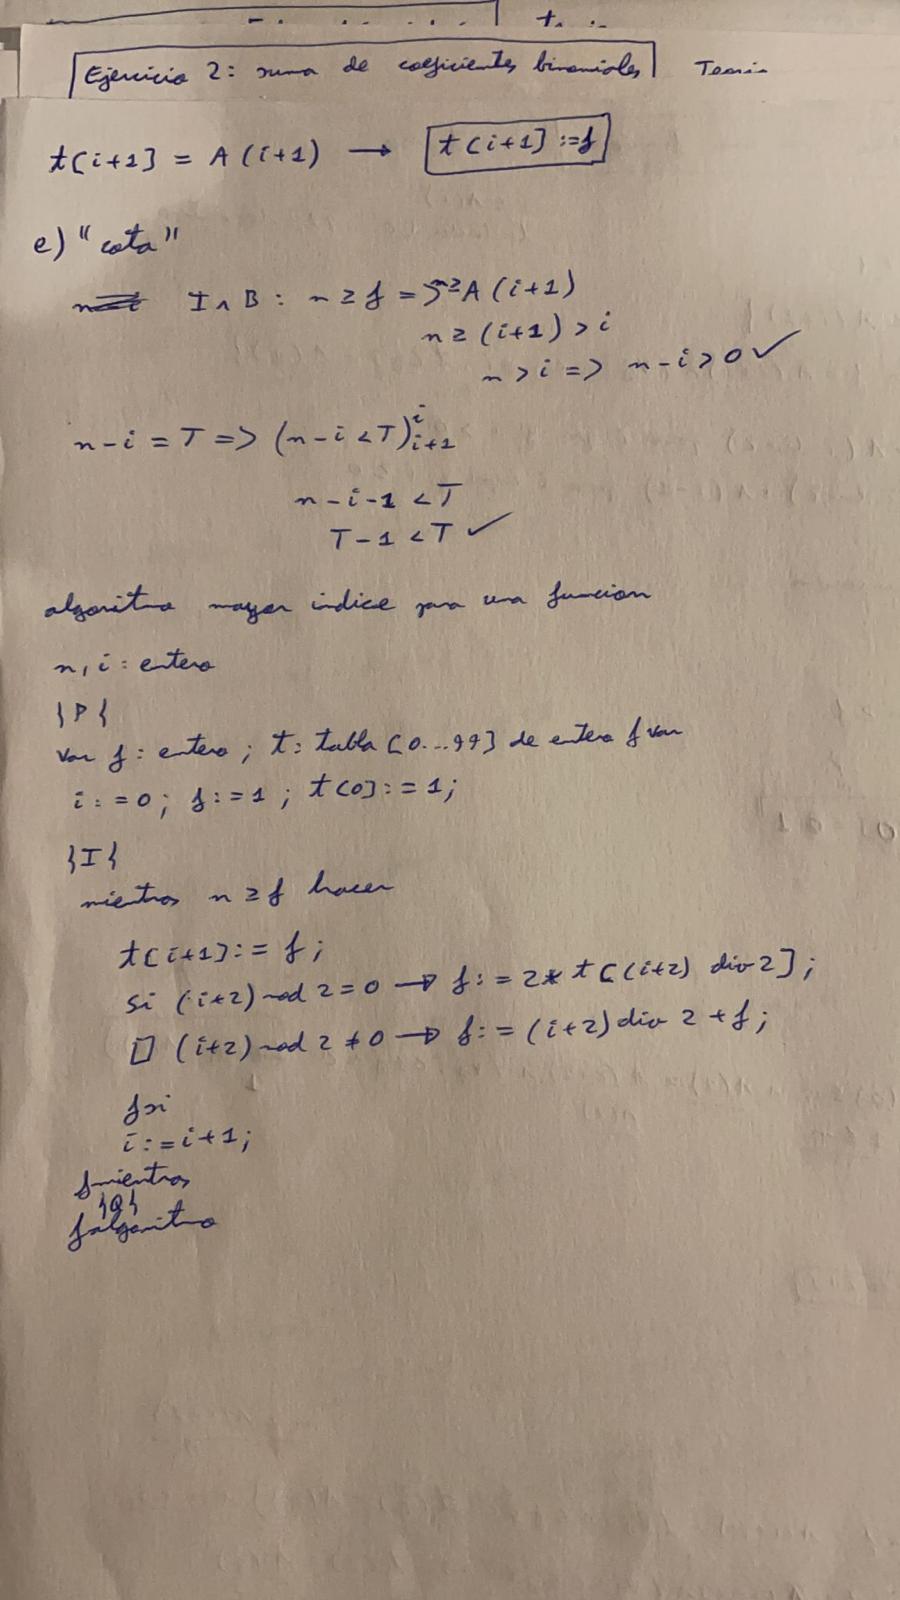 Ejercicio 2: suma de coeficientes binomiales Teoria
t[i+1] = A(i+1) → t[i+1] := f
e) "cota"
I ∧ B : n ≥ f = A(i+1)
n ≥ (i+1) > i
n > i => n-i > 0 ✓
n-i = T => (n-i < T)^i_{i+1}
n-i-1 < T
T-1 < T ✓
algoritmo mayor indice para una funcion
n, i : entero
{P}
var f : entero ; t : tabla [0...99] de entero fvar
i := 0 ; f := 1 ; t[0] := 1 ;
{I}
mientras n ≥ f hacer
t[i+1] := f ;
si (i+2) mod 2 = 0 → f := 2 * t[(i+2) div 2] ;
[] (i+2) mod 2 ≠ 0 → f := (i+2) div 2 + f ;
fsi
i := i+1 ;
fmientras
{Q}
falgoritmo